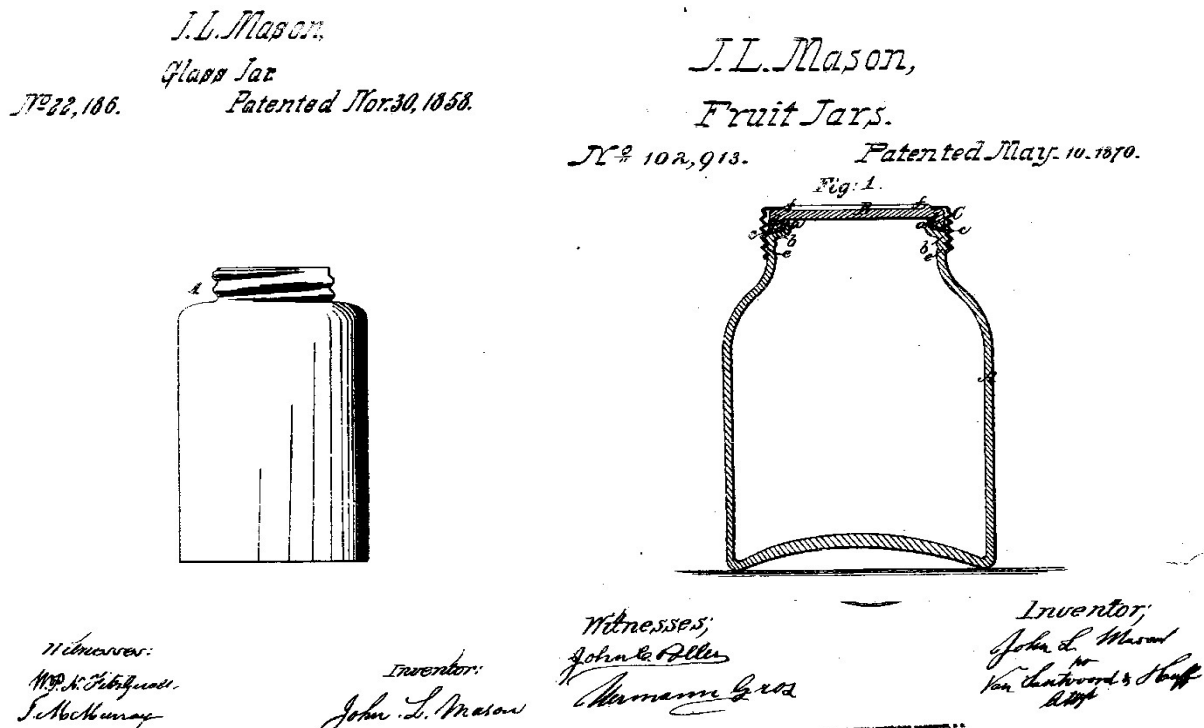 J. L. Mason,
Glass Jar.
No 22,186. Patented Nov. 30, 1858.
A
Witnesses:
Inventor:
John L. Mason
J. L. Mason,
Fruit Jars.
No 102,913. Patented May 10. 1870.
Fig: 1.
f B f
a a C
c c
b b
e e
A
Witnesses;
Hermann Gros
Inventor;
John L. Mason
Van Santvoord & Hauff
Attys